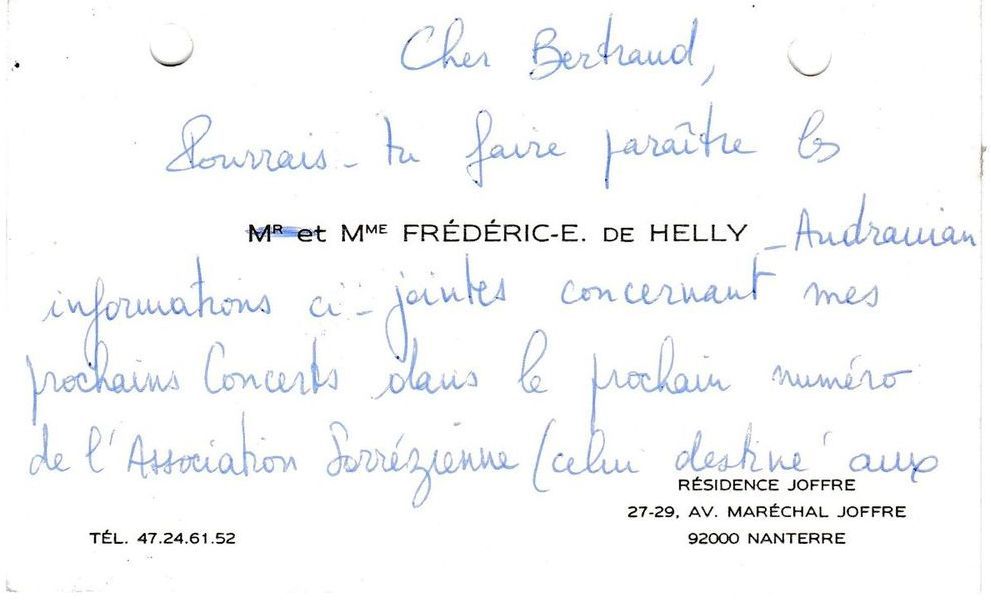 Cher Bertrand,
Pourrais-tu faire paraître les
Mʀ et Mᴹᴱ FRÉDÉRIC-E. DE HELLY - Andranian
informations ci-jointes concernant mes
prochains Concerts dans le prochain numéro
de l'Association Sorézienne (celui destiné aux
RÉSIDENCE JOFFRE
27-29, AV. MARÉCHAL JOFFRE
TÉL. 47.24.61.52 92000 NANTERRE